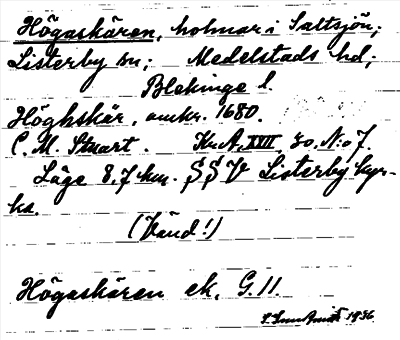 Högaskären, holmar i Saltsjön;
Listerby sn; Medelstads hd;
Blekinge l.
Höghskär, omkr. 1680.
C. M. Stuart. Kr. A. XVIII, 30. N:o 7.
Läge 8,7 km. SSV Listerby kyr-
ka.
(Vänd!)
Högaskären ek. G. 11.
1936